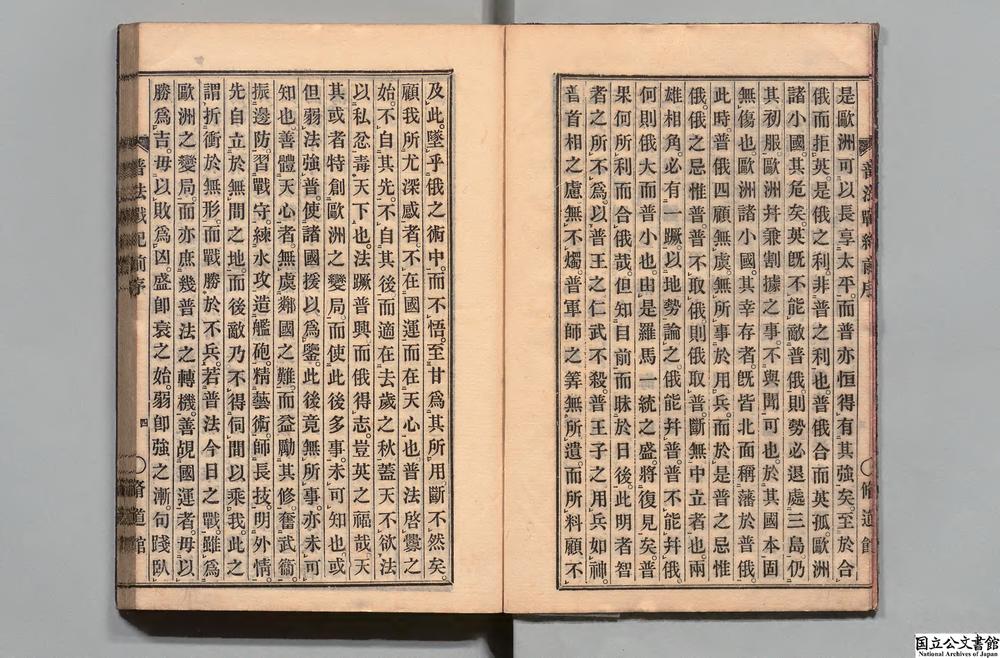 是歐洲可以長享太平而普亦恒得有其強矣。至於合
俄而拒英。是俄之利。非普之利也。普俄合而英孤。歐洲
諸小國。其危矣。英既不能敵普俄。則勢必退處三島。仍
其初服。歐洲幷兼割據之事。不與聞可也。於其國本固
無傷也。歐洲諸小國。其幸存者。旣皆北面稱藩於普俄。
此時普俄四顧無虞。無所事於用兵。而於是普之忌惟
俄。俄之忌惟普。普不取俄。則俄取普。斷無中立者也。兩
雄相角。必有一蹶。以地勢論之。俄能幷普。普不能幷俄。
何則。俄大而普小也。由是羅馬一統之盛。將復見矣。普
果何所利而合俄哉。但知目前而昧於日後。此明者智
者之所不爲。以普王之仁武不殺。普王子之用兵如神。
普首相之慮無不燭。普軍師之筭無所遺。而所料顧不
及此。墮乎俄之術中。而不悟。至甘爲其所用。斷不然矣。
顧我所尤深感者。不在國運而在天心也。普法啓釁之
始。不自其先。不自其後。而適在去歲之秋。蓋天不欲法
以私忿毒天下也。法蹶普興而俄得志。豈英之福哉。天
其或者特創歐洲之變局。而使此後多事。未可知也。或
但弱法強普。使諸國援以爲鑒。此後竟無所事。亦未可
知也。善體天心者。無虞鄰國之難。而益勵其修。奮武衞。
振邊防。習戰守。練水攻。造艦砲。精藝術。師長技。明外情。
先自立於無間之地。而後敵乃不得伺間以乘我。此之
謂折衝於無形。而戰勝於不兵。若普法今日之戰。雖爲
歐洲之變局。而亦庶幾普法之轉機。善覘國運者。毋以
勝爲吉。毋以敗爲凶。盛卽衰之始。弱卽強之漸。句踐臥
普法戰紀前序
四
脩道館
普法戰紀前序
脩道館
国立公文書館
National Archives of Japan